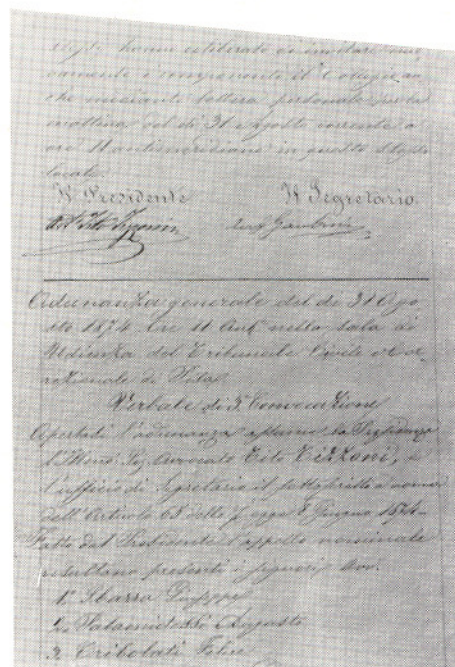 stesso hanno deliberato di invitare nuo
vamente e
che mediante lettera personale per la
mattina del dì 31 Agosto corrente a
ore 11 antimeridiane in questo stesso
locale.
Il Presidente Il Segretario
Adunanza generale del dì 31 Ago
sto 1874. Ore 11 Ant. nella sala di
Udienza del Tribunale Civile e Cor-
rezionale di Pisa.
Verbale di 3ª Convocazione
Apertasi l'adunanza assume la Presidenza
l'Illmo. Sig. Avvocato Tito Tizzoni, e
l'ufficio di Segretario il sottoscritto a norma
dell'Articolo 65 della Legge 8 Giugno 1874-
Fatto dal Presidente l'appello nominale
resultano presenti i signori Avv.
1. Sbarra Giuseppe
2. Palamidessi Augusto
3. Tribolati Felice